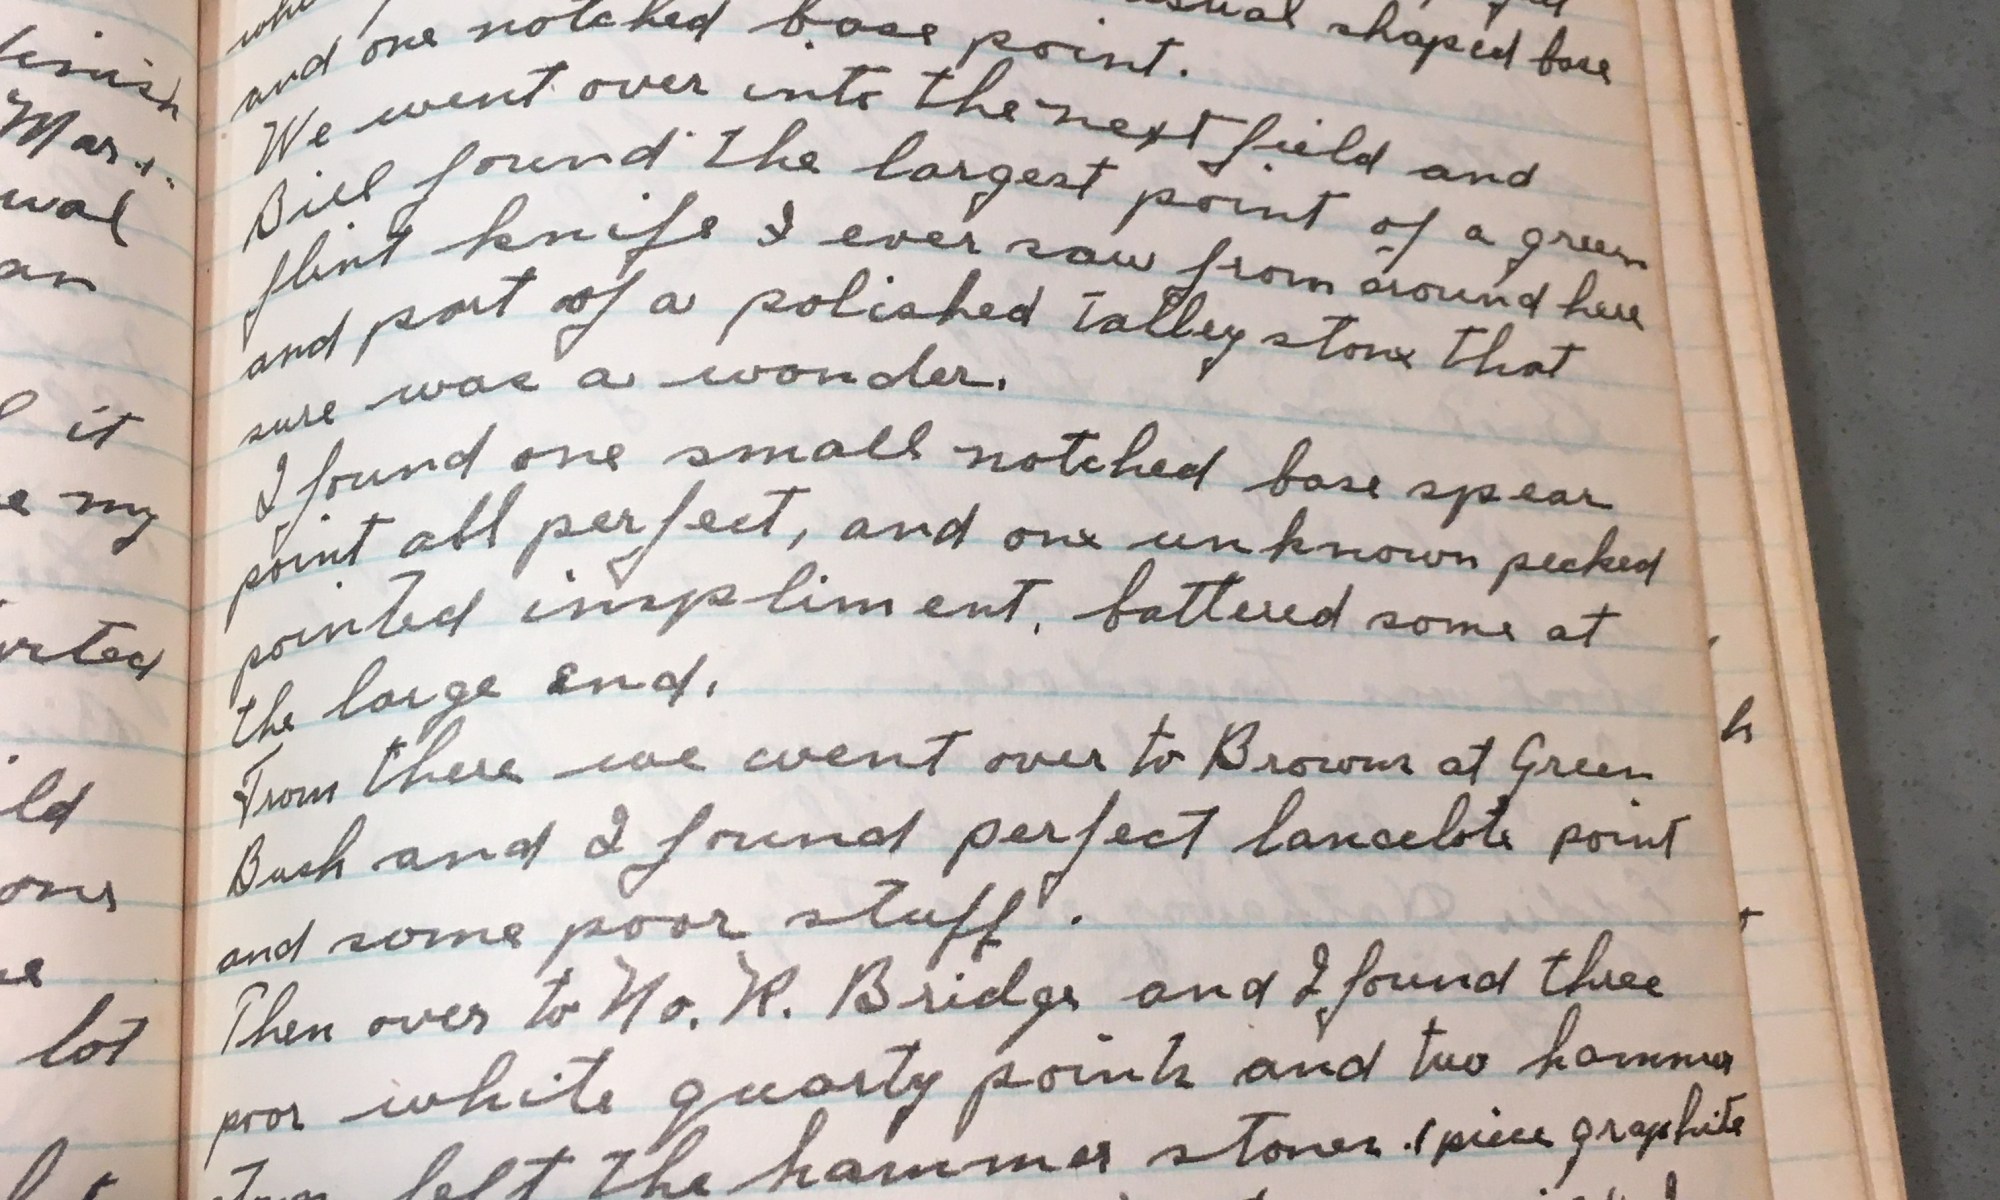 inish
Mar
wal
an
it
my
rted
ld
lot
h
shaped base
and one notched base point.
We went over into the next field and
Bill found the largest point of a green
flint knife I ever saw from around here
and part of a polished talley stone that
sure was a wonder.
I found one small notched base spear
point all perfect, and one unknown pecked
pointed impliment, battered some at
the large end.
From there we went over to Browns at Green
Bush and I found perfect lancelote point
and some poor stuff.
Then over to No. R. Bridge and I found three
poor white quarty points and two hammer
left the hammer stones. 1 piece graphite